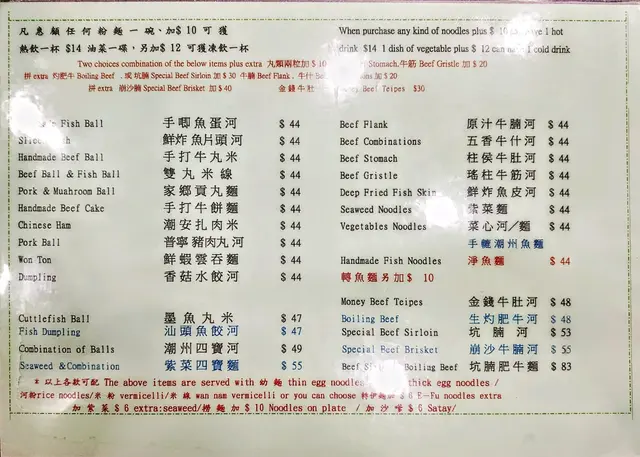 凡惠顧任何粉麵一碗、加$10可獲
熱飲一杯 $14 油菜一碟，另加$12可獲凍飲一杯
When purchase any kind of noodles plus $10 can have 1 hot
drink $14 1 dish of vegetable plus $12 can 1 cold drink
Two choices combination of the below items plus extra 丸類兩粒加$10 Stomach,牛筋 Beef Gristle 加$20
拼 extra 灼肥牛 Boiling Beef 、或坑腩 Special Beef Sirloin 加$30 牛腩 Beef Flank、牛什 加$20
拼 extra 崩沙腩 Special Beef Brisket 加$40 金錢牛肚 Beef Teipes $30
Fish Ball 手唧魚蛋河 $44
鮮炸魚片頭河 $44
Handmade Beef Ball 手打牛丸米 $44
Beef Ball & Fish Ball 雙丸米線 $44
Pork & Muahroom Ball 家鄉貢丸麵 $44
Handmade Beef Cake 手打牛餅麵 $44
Chinese Ham 潮安扎肉米 $44
Pork Ball 普寧豬肉丸河 $44
Won Ton 鮮蝦雲吞麵 $44
Dumpling 香菇水餃河 $44
Cuttlefish Ball 墨魚丸米 $47
Fish Dumpling 汕頭魚餃河 $47
Combination of Balls 潮州四寶河 $49
Seaweed &Combination 紫菜四寶麵 $55
Beef Flank 原汁牛腩河 $44
Beef Combinations 五香牛什河 $44
Beef Stomach 柱侯牛肚河 $44
Beef Gristle 瑤柱牛筋河 $44
Deep Fried Fish Skin 鮮炸魚皮河 $44
Seaweed Noodles 紫菜麵 $44
Vegetables Noodles 菜心河／麵 $44
手轆潮州魚麵
Handmade Fish Noodles 淨魚麵 $44
轉魚麵另加$ 10
Money Beef Teipes 金錢牛肚河 $48
Boiling Beef 生灼肥牛河 $48
Special Beef Sirloin 坑腩河 $53
Special Beef Brisket 崩沙牛腩河 $55
Beef Boiling Beef 坑腩肥牛麵 $83
* 以上各款可配 The above items are served with 幼麵 thin egg noodles thick egg noodles /
河粉rice noodles/米粉 vermicelli/米線 wan nam vermicelli or you can choose 轉伊麵加$6 E-Fu noodles extra
加紫菜$6 extra:seaweed/撈麵加$10 Noodles on plate /加沙嗲$6 Satay/